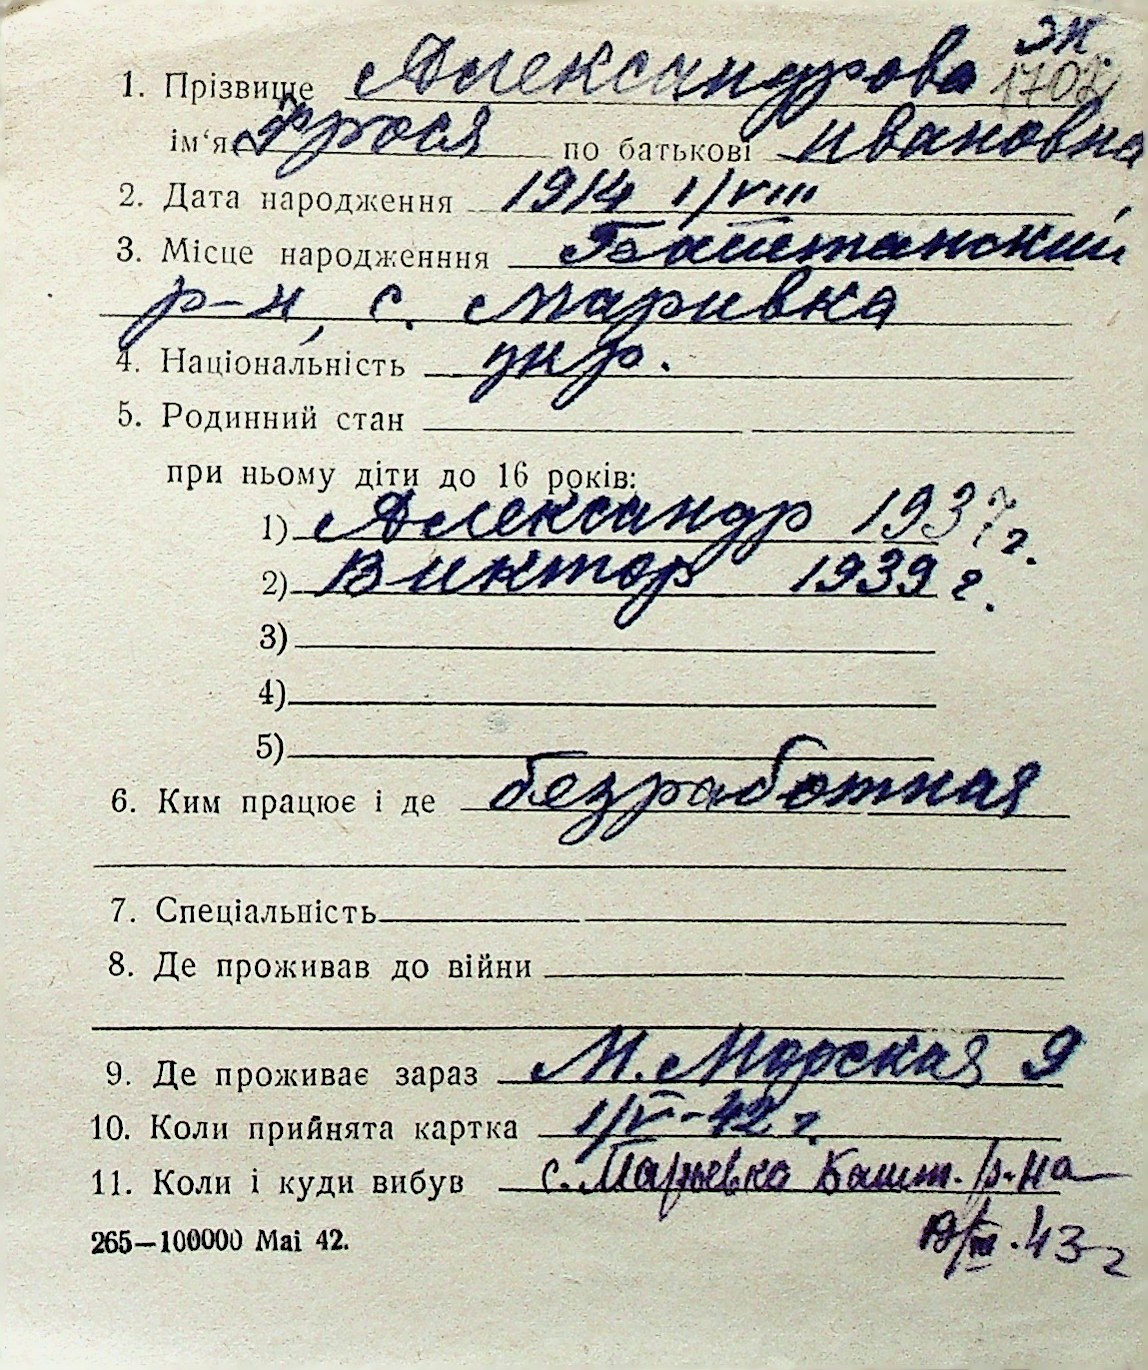 эк
1. Прізвище Александрова 1702
ім‘я Фрося по батькові Ивановна
2. Дата народження 1914 1/VIII
3. Місце народженння Баштанский
р-н, с. Маривка
4. Національність укр.
5. Родинний стан
при ньому діти до 16 років:
1) Александр 1937 г.
2) Виктор 1939 г.
3)
4)
5)
6. Ким працює і де безработная
7. Спеціальність
8. Де проживав до війни
9. Де проживає зараз М. Морская 9
10. Коли прийнята картка 1/V-42 г.
11. Коли і куди вибув с. Марьевка Башт. р-на
.43 г
265—100000 Mai 42.